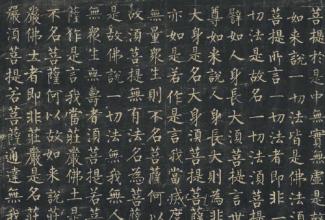 菩提於是中無實無虛是故
如來說一切法皆是佛法須
菩提所言一切法者即非一
切法是故名一切法須菩提
譬如人身長大須菩提言世
尊如來說人身長大則為非
大身是名大身須菩提菩薩
亦如是若作是言我當滅度
無量眾生則不名菩薩何以
故須菩提無有法名為菩薩
是故佛說一切法無我無人
無眾生無壽者須菩提若菩
薩作是言我當莊嚴佛土是
不名菩薩何以故如來說莊
嚴佛土者即非莊嚴是名莊
嚴須菩提若菩薩通達無我